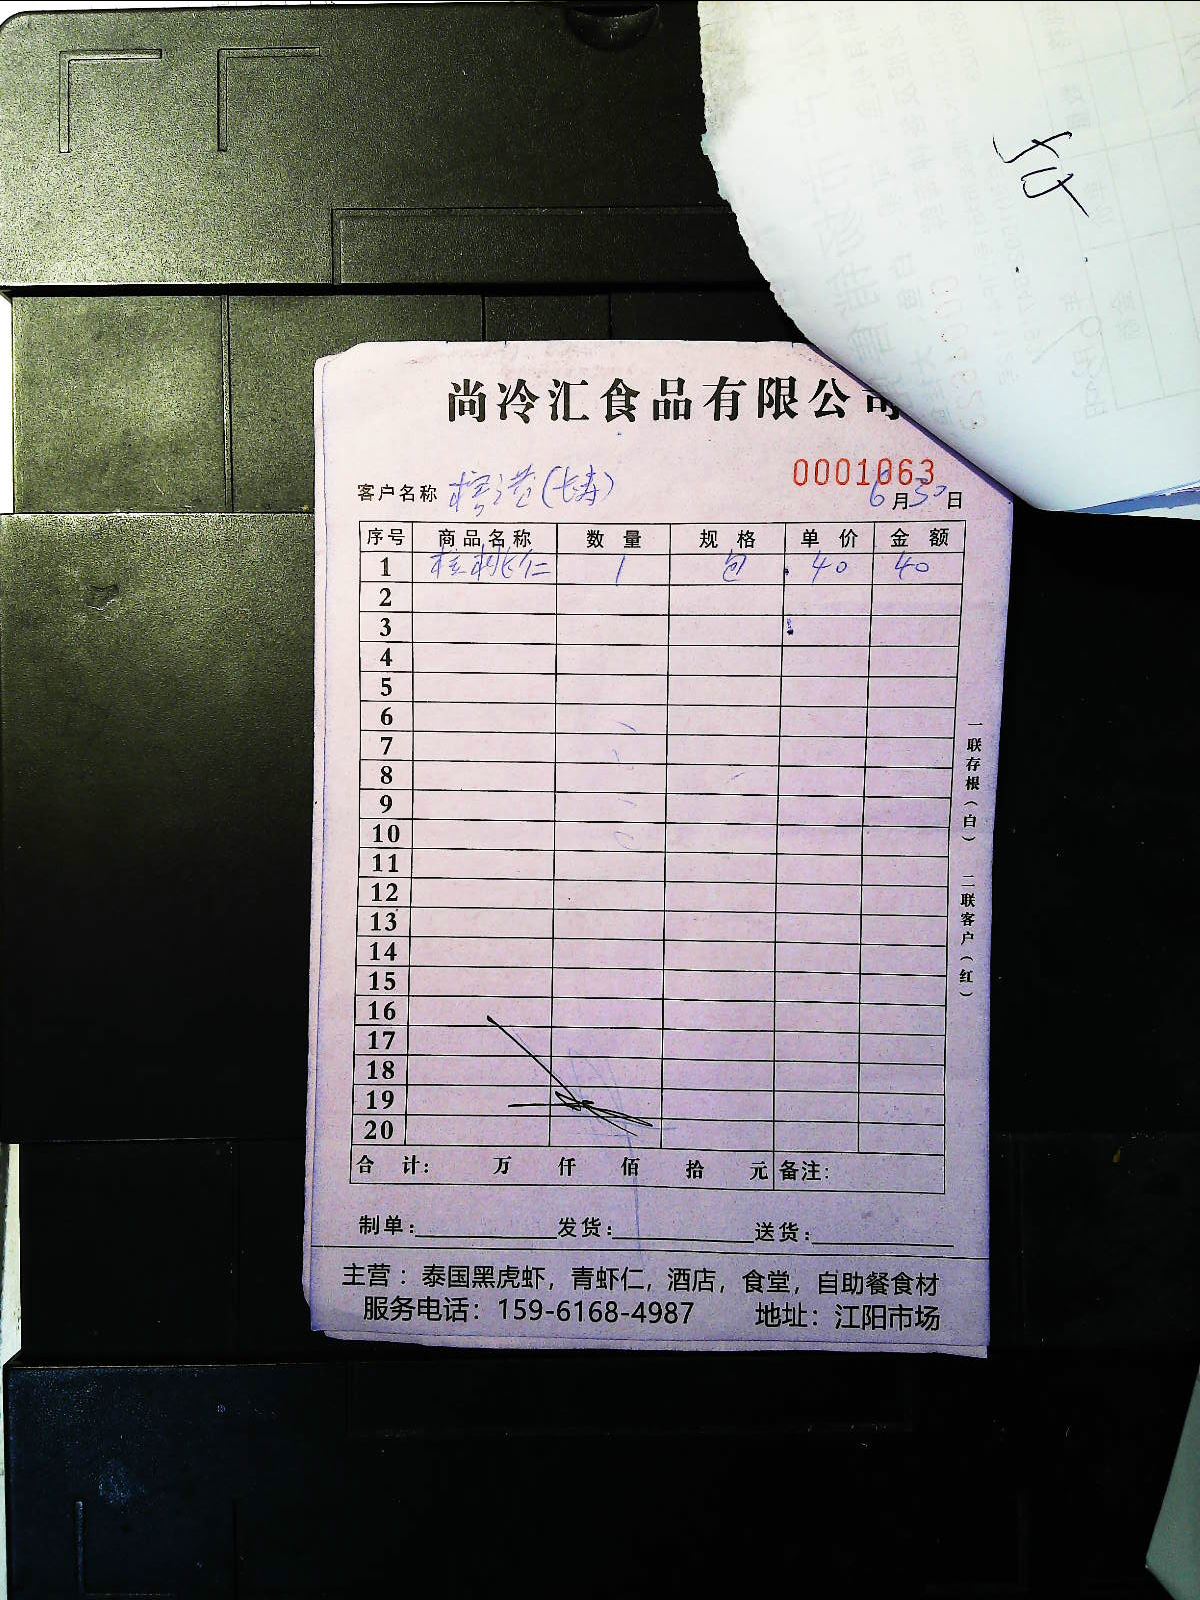 尚冷汇食品有限公司
0001063
客户名称 (长寿) 6月30日
序号 商品名称 数量 规格 单价 金额
1 核桃仁 1 包 40 40
2
3
4
5
6
7
8
9
10
11
12
13
14
15
16
17
18
19
20
合计: 万 仟 佰 拾 元 备注:
制单: 发货: 送货:
主营：泰国黑虎虾，青虾仁，酒店，食堂，自助餐食材
服务电话：159-6168-4987 地址：江阳市场
一联存根（白） 二联客户（红）